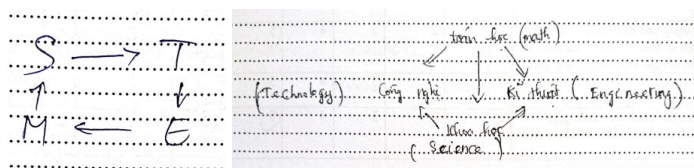 S → T
↑ ↓
M ← E
toán học (math)
(Technology) Công nghệ Kĩ thuật (Engineering)
khoa học
(Science)